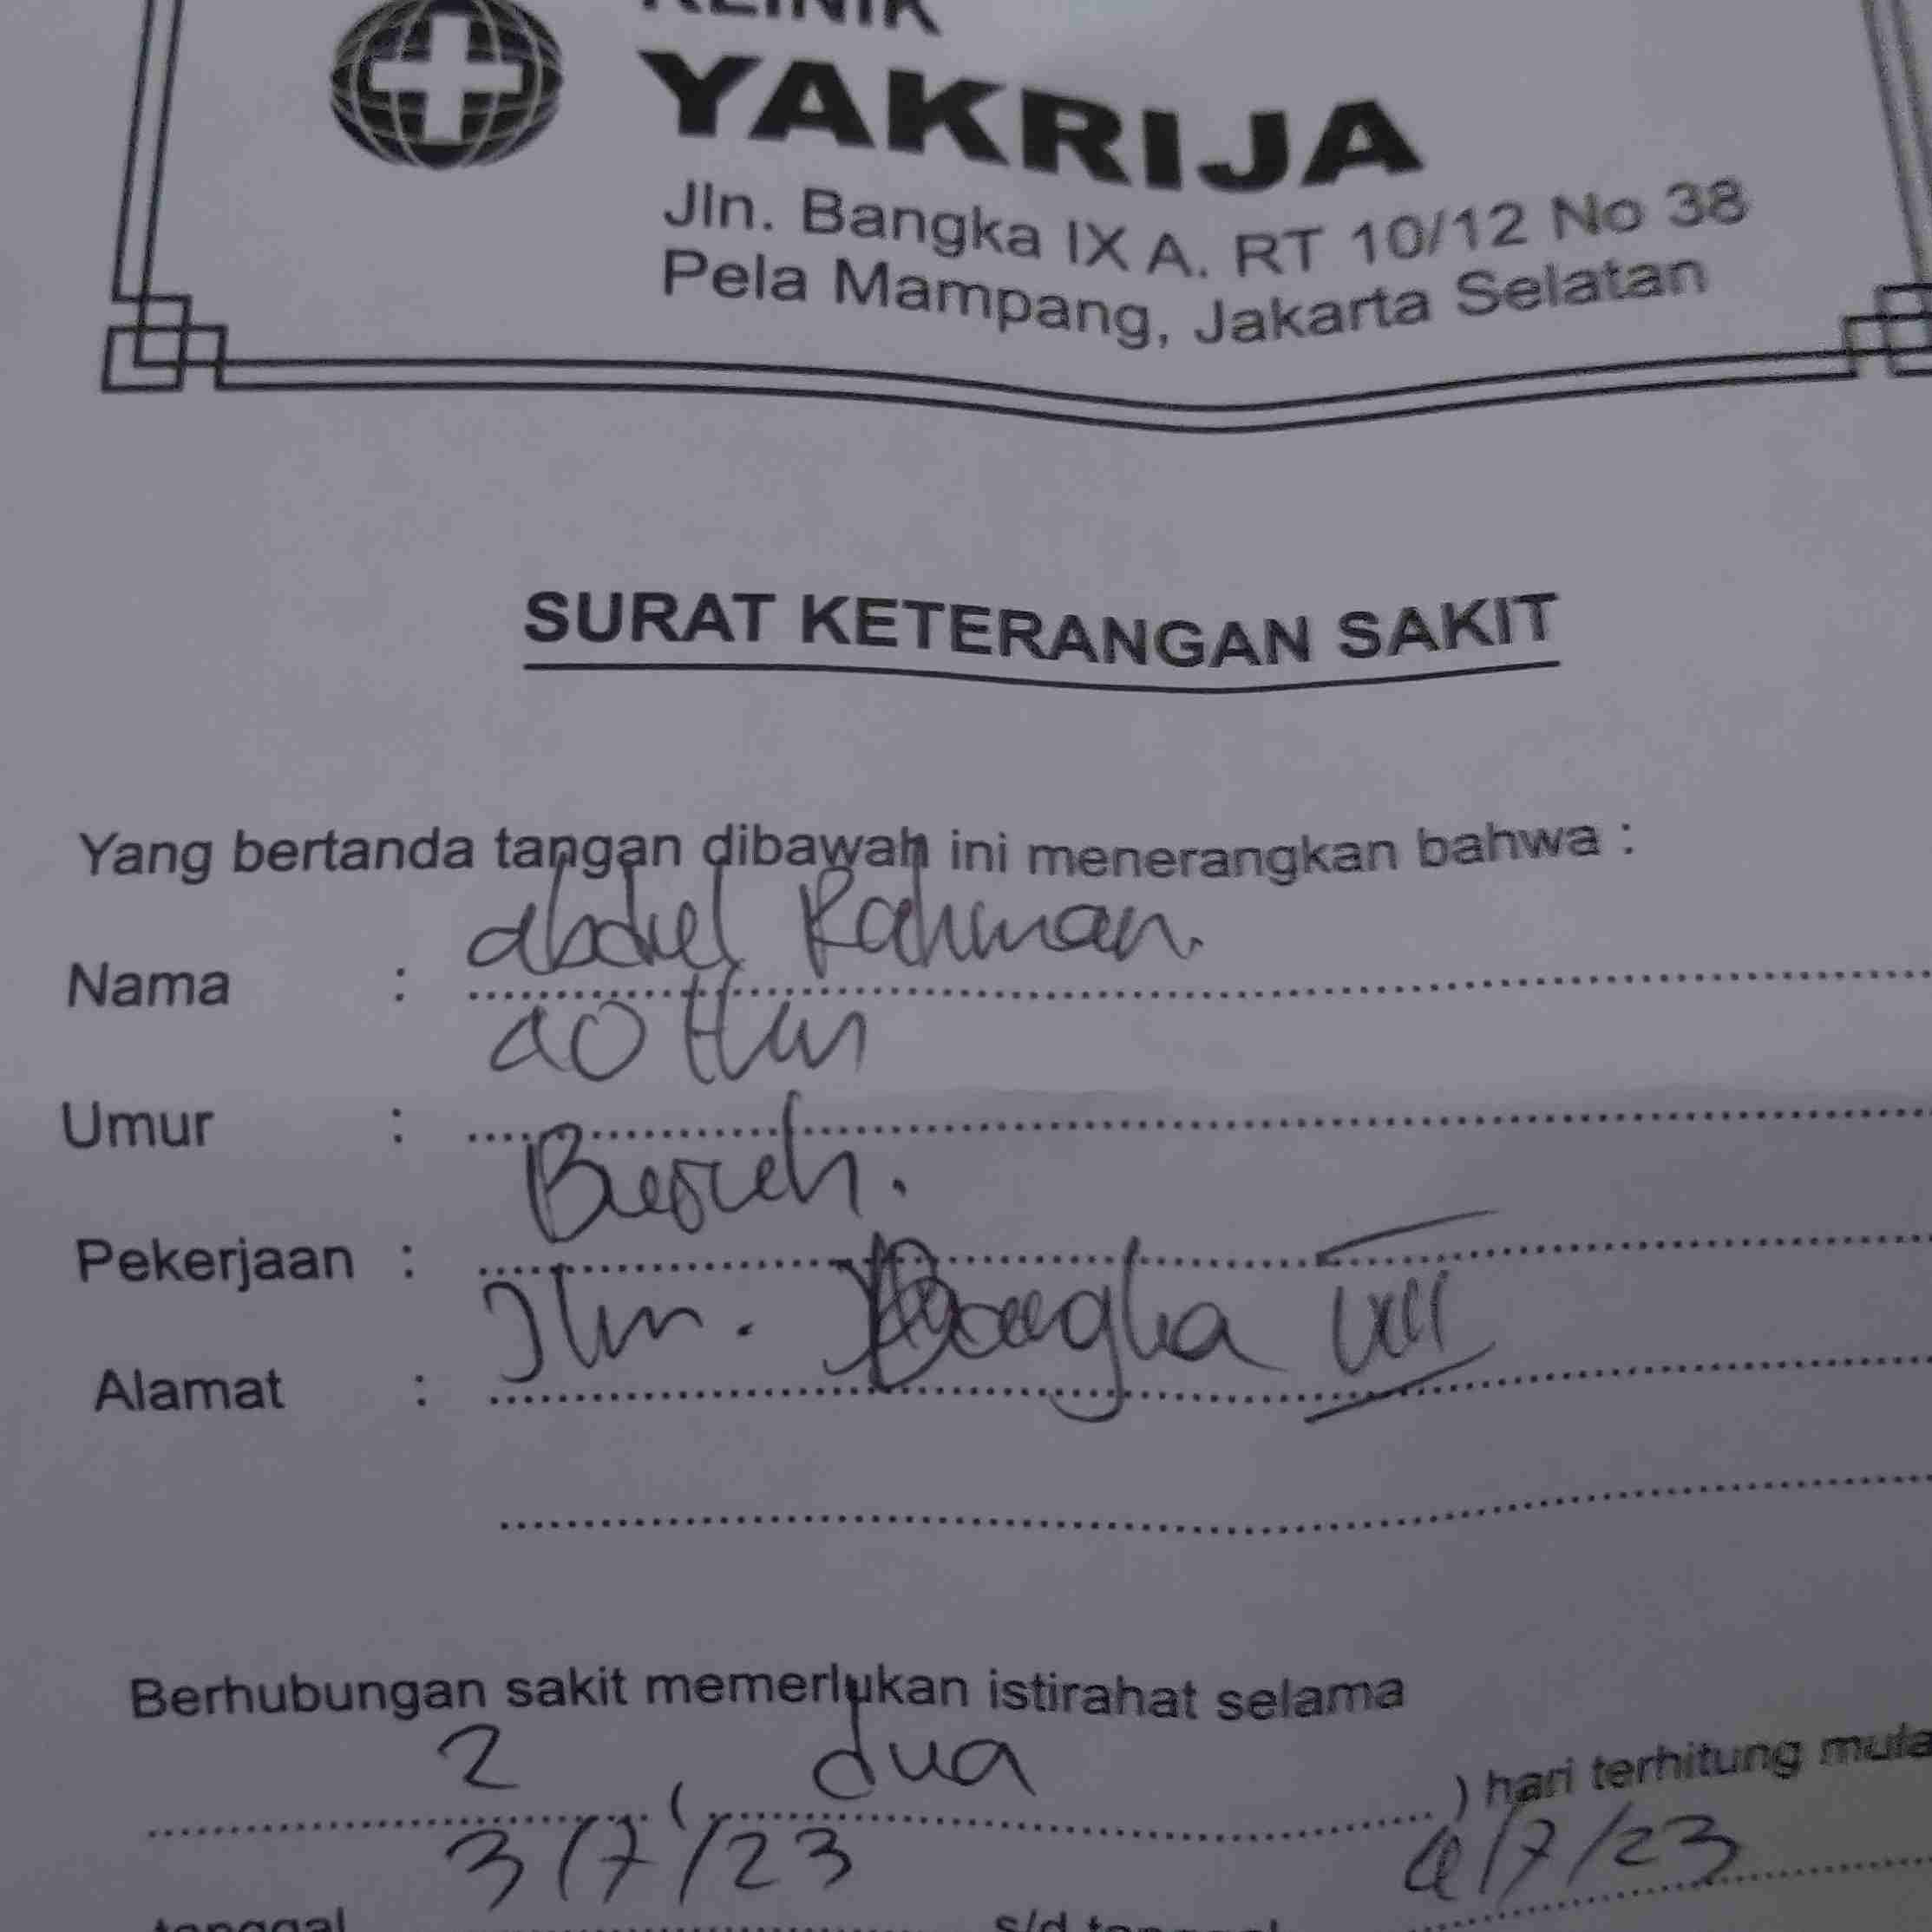 KLINIK
YAKRIJA
Jln. Bangka IX A. RT 10/12 No 38
Pela Mampang, Jakarta Selatan
SURAT KETERANGAN SAKIT
Yang bertanda tangan dibawah ini menerangkan bahwa :
Nama : abdul Rahman.
Umur : 40 thn
Pekerjaan : Buruh.
Alamat : Jln. Bangka VII
Berhubungan sakit memerlukan istirahat selama
2 ( dua ) hari terhitung mula
tanggal 3/7/23 s/d tanggal 4/7/23